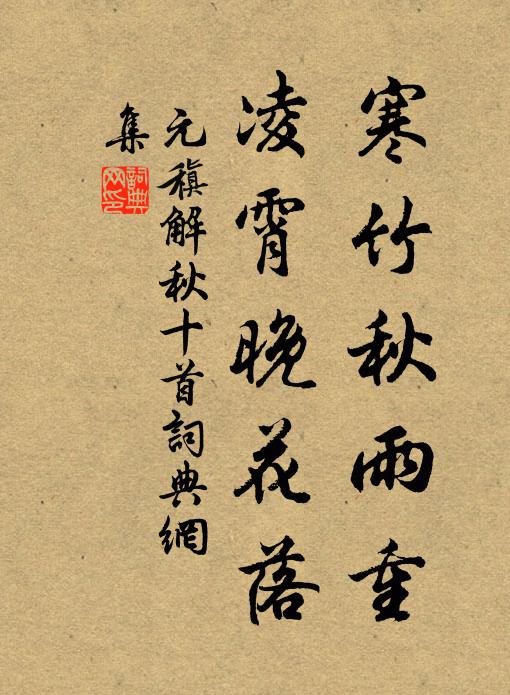 寒竹秋雨重
凌霄晚花落
元稹解秋十首詞典網
集
詞典
网印